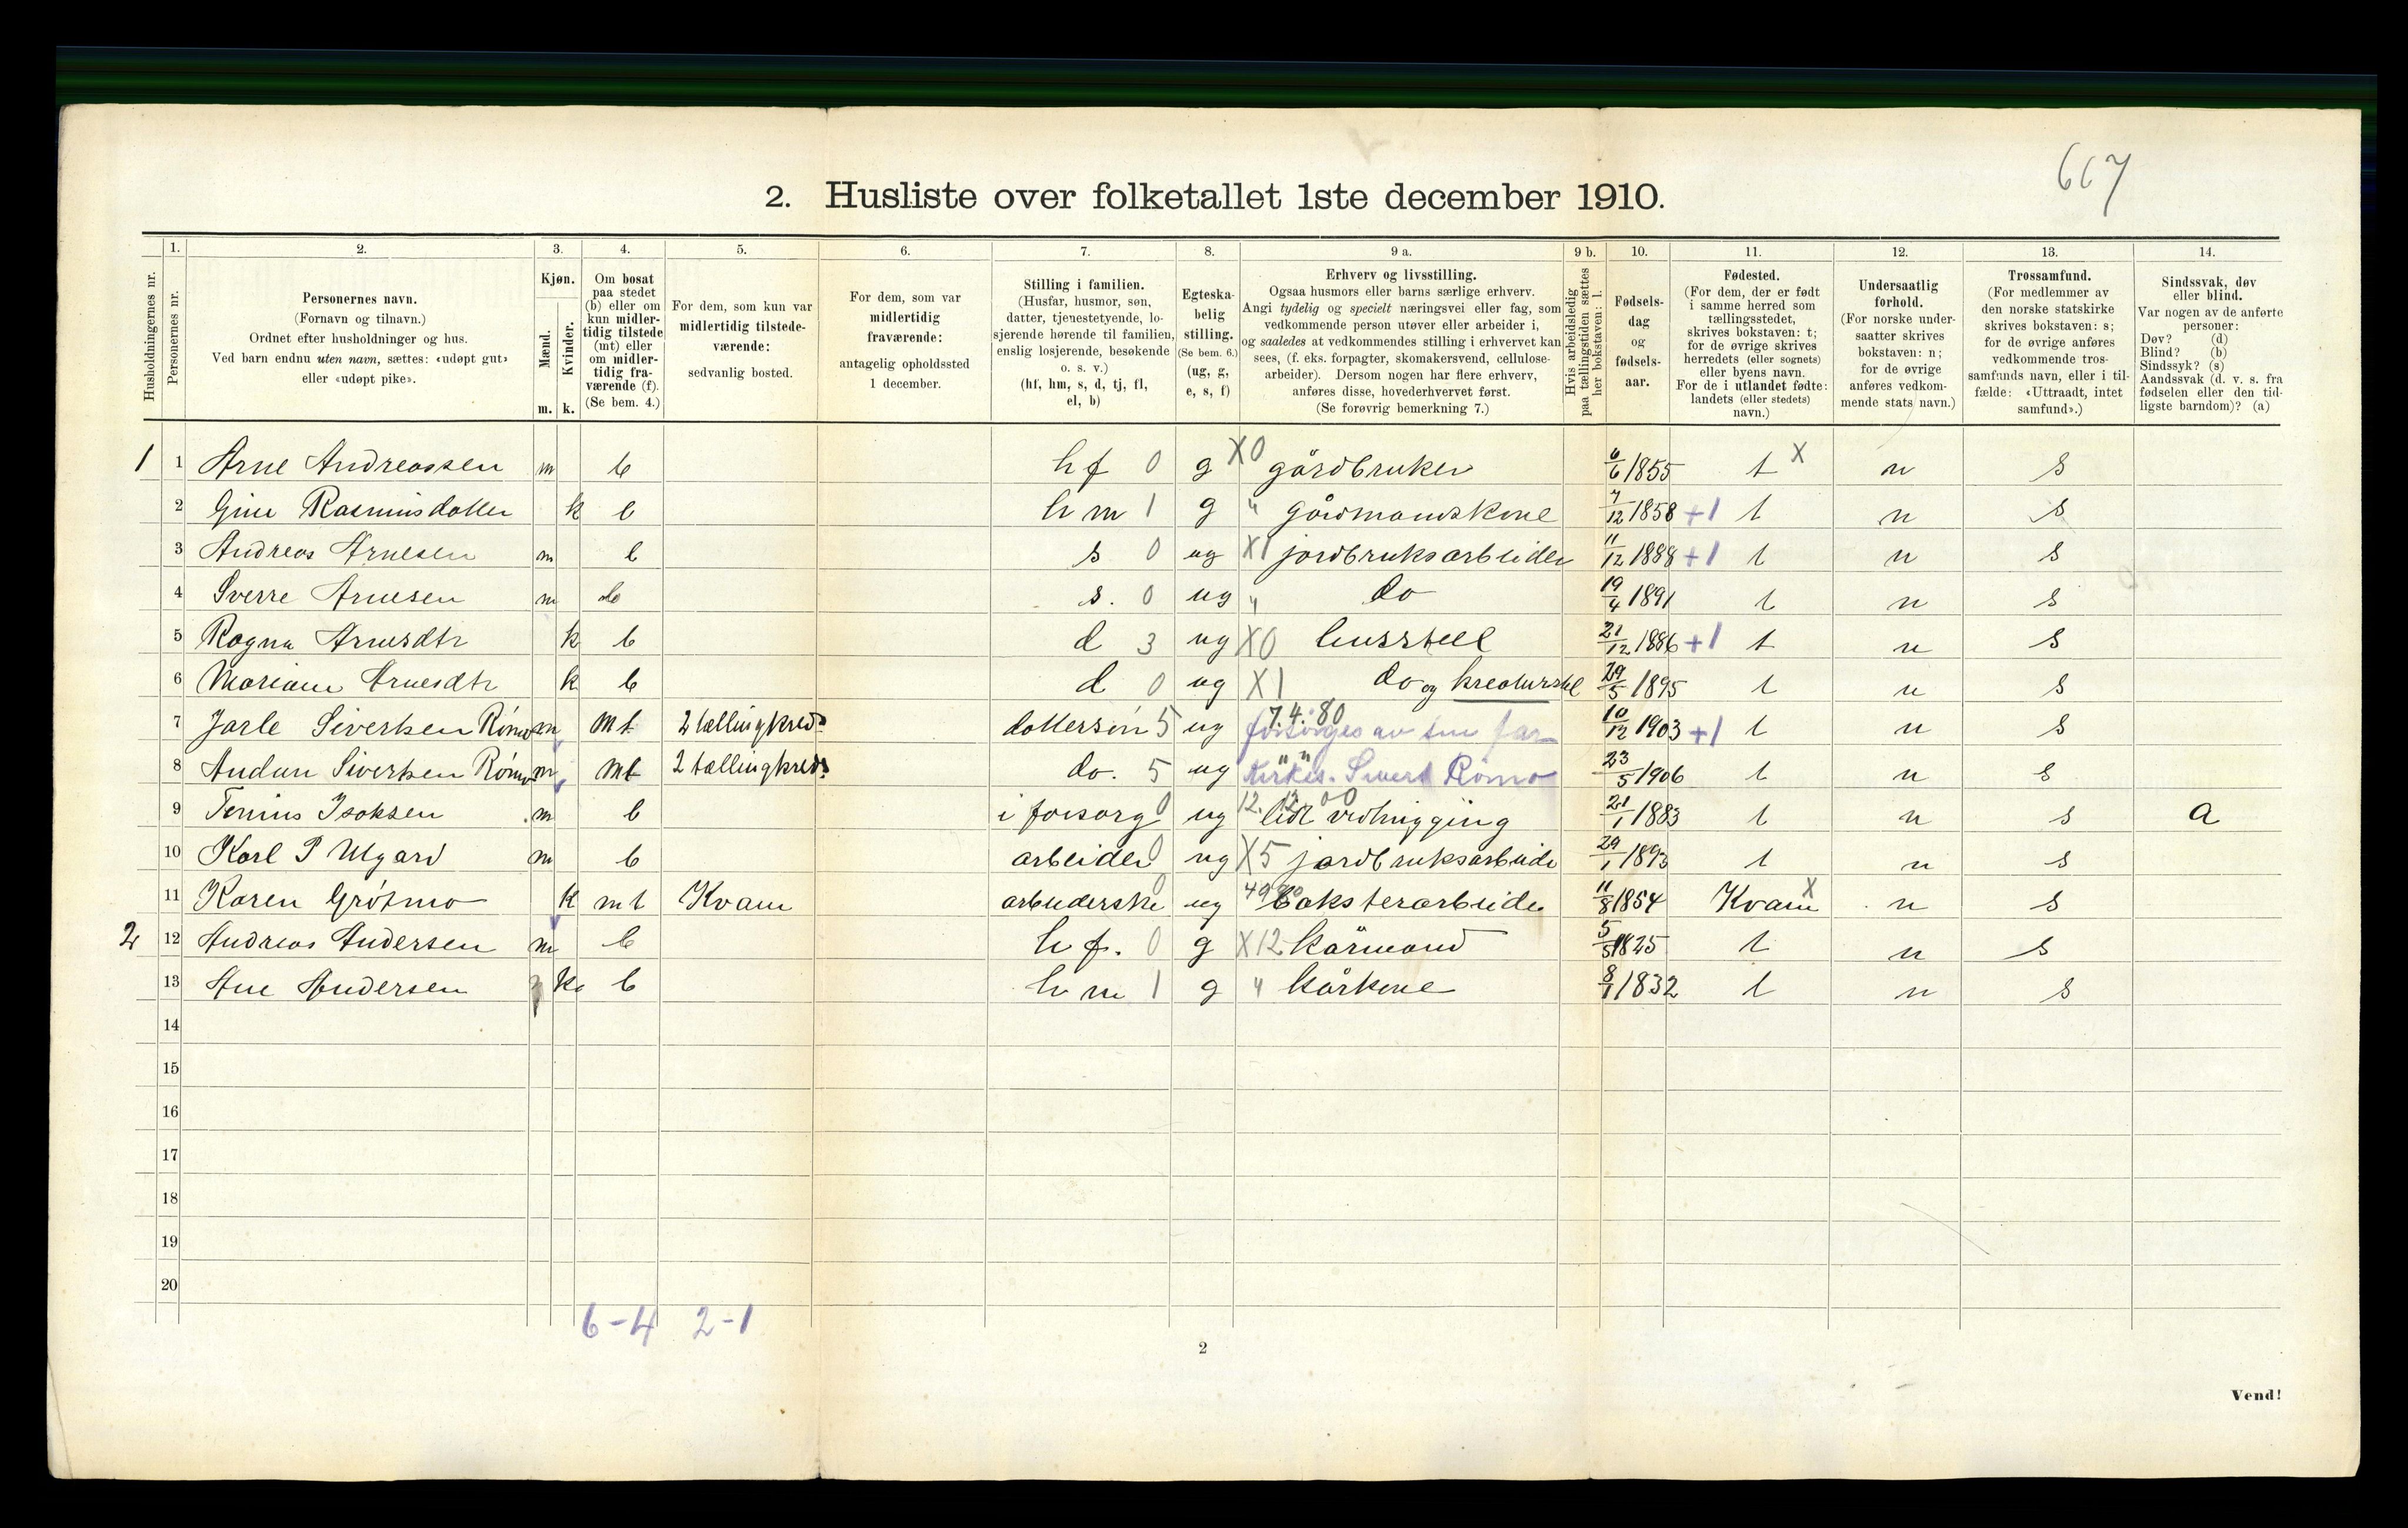 667
2. Husliste over folketallet 1ste december 1910.
Husholdningernes nr.
1.
Personernes nr.
2.
Personernes navn.
(Fornavn og tilnavn.)
Ordnet efter husholdninger og hus.
Ved barn endnu uten navn, sættes: «udøpt gut»
eller «udøpt pike».
3.
Kjøn.
Mænd.
Kvinder.
m. k.
4.
Om bosat
paa stedet
(b) eller om
kun midler-
tidig tilstede
(mt) eller
om midler-
tidig fra-
værende (f).
(Se bem. 4.)
5.
For dem, som kun var
midlertidig tilstede-
værende:
sedvanlig bosted.
6.
For dem, som var
midlertidig
fraværende:
antagelig opholdssted
1 december.
7.
Stilling i familien.
(Husfar, husmor, søn,
datter, tjenestetyende, lo-
sjerende hørende til familien,
enslig losjerende, besøkende
o. s. v.)
(hf, hm, s, d, tj, fl,
el, b)
8.
Egteska-
belig
stilling.
(Se bem. 6.)
(ug, g,
e, s, f)
9 a.
Erhverv og livsstilling.
Ogsaa husmors eller barns særlige erhverv.
Angi tydelig og specielt næringsvei eller fag, som
vedkommende person utøver eller arbeider i,
og saaledes at vedkommendes stilling i erhvervet kan
sees, (f. eks. forpagter, skomakersvend, cellulose-
arbeider). Dersom nogen har flere erhverv,
anføres disse, hovederhvervet først.
(Se forøvrig bemerkning 7.)
9 b.
Hvis arbeidsledig
paa tællingstiden sættes
her bokstaven: l.
10.
Fødsels-
dag
og
fødsels-
aar.
11.
Fødested.
(For dem, der er født
i samme herred som
tællingsstedet,
skrives bokstaven: t;
for de øvrige skrives
herredets (eller sognets)
eller byens navn.
For de i utlandet fødte:
landets (eller stedets)
navn.)
12.
Undersaatlig
forhold.
(For norske under-
saatter skrives
bokstaven: n;
for de øvrige
anføres vedkom-
mende stats navn.)
13.
Trossamfund.
(For medlemmer av
den norske statskirke
skrives bokstaven: s;
for de øvrige anføres
vedkommende tros-
samfunds navn, eller i til-
fælde: «Uttraadt, intet
samfund».)
14.
Sindssvak, døv
eller blind.
Var nogen av de anførte
personer:
Døv? (d)
Blind? (b)
Sindssyk? (s)
Aandssvak (d. v. s. fra
fødselen eller den tid-
ligste barndom)? (a)
1 1 Arne Andreassen m b hf 0 g X0 gårdbruker 6/6 1855 t X n s
2 Gine Rasmusdatter k b hm 1 g " gårdmandskone 7/12 1858 +1 t n s
3 Andreas Arnesen m b s 0 ug X1 jordbruksarbeider 11/12 1888 +1 t n s
4 Sverre Arnesen m b s. 0 ug " do 19/4 1891 t n s
5 Ragna Arnesdtr k b d 3 ug X0 husstell 21/12 1886 +1 t n s
6 Mariane Arnesdtr k b d 0 ug X1 do og kreaturstel 29/5 1895 t n s
7 Jarle Sivertsen Rømo m mt 2 tællingkreds dattersøn 5 ug 7.4.80 forsørges av sin far 10/12 1903 +1 t n s
8 Audun Sivertsen Rømo m mt 2 tællingkreds do. 5 ug " " Kirkes. Sivert Rømo 23/5 1906 t n s
9 Tenius Isaksen m b i forsorg 0 ug 12.12.00 lidt vedhugging 21/1 1883 t n s a
10 Karl P Ulgard m b arbeider 0 ug X5 jordbruksarbeide 29/1 1893 t n s
11 Karen Grøtmo k mt Kvam arbeiderske 0 ug 49 baksterarbeide 11/8 1854 Kvam X n s
2 12 Andreas Andersen m b hf. 0 g X12 kårmand 5/5 1825 t n s
13 Ane Andersen k b hm 1 g " kårkone 8/1 1832 t n s
14
15
16
17
18
19
20
6-4 2-1
2
Vend!